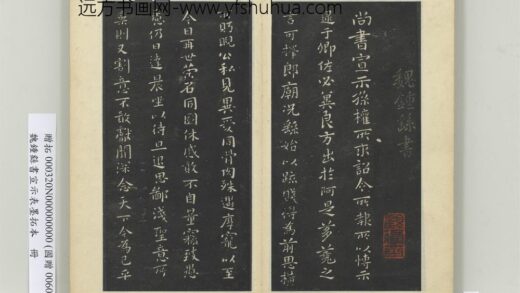 远方书画网-www.yfshuhua.com
魏鍾繇書
尚書宣示孫權所求詔令所報所以博示
逮于卿佐必冀良方出於阿是芻蕘之
言可擇郎廟況繇始以疏賤得為前恩橫
所盱睨公私見異愛同骨肉殊遇厚寵以至
今日再世榮名同國休慼敢不自量竊致愚
慮仍日達晨坐以待旦退思鄙淺聖意所
棄則又割意不敢獻聞深念天下今為已平
贈拓 000320N000000000 (國贈 0060
魏鍾繇書宣示表墨拓本 冊